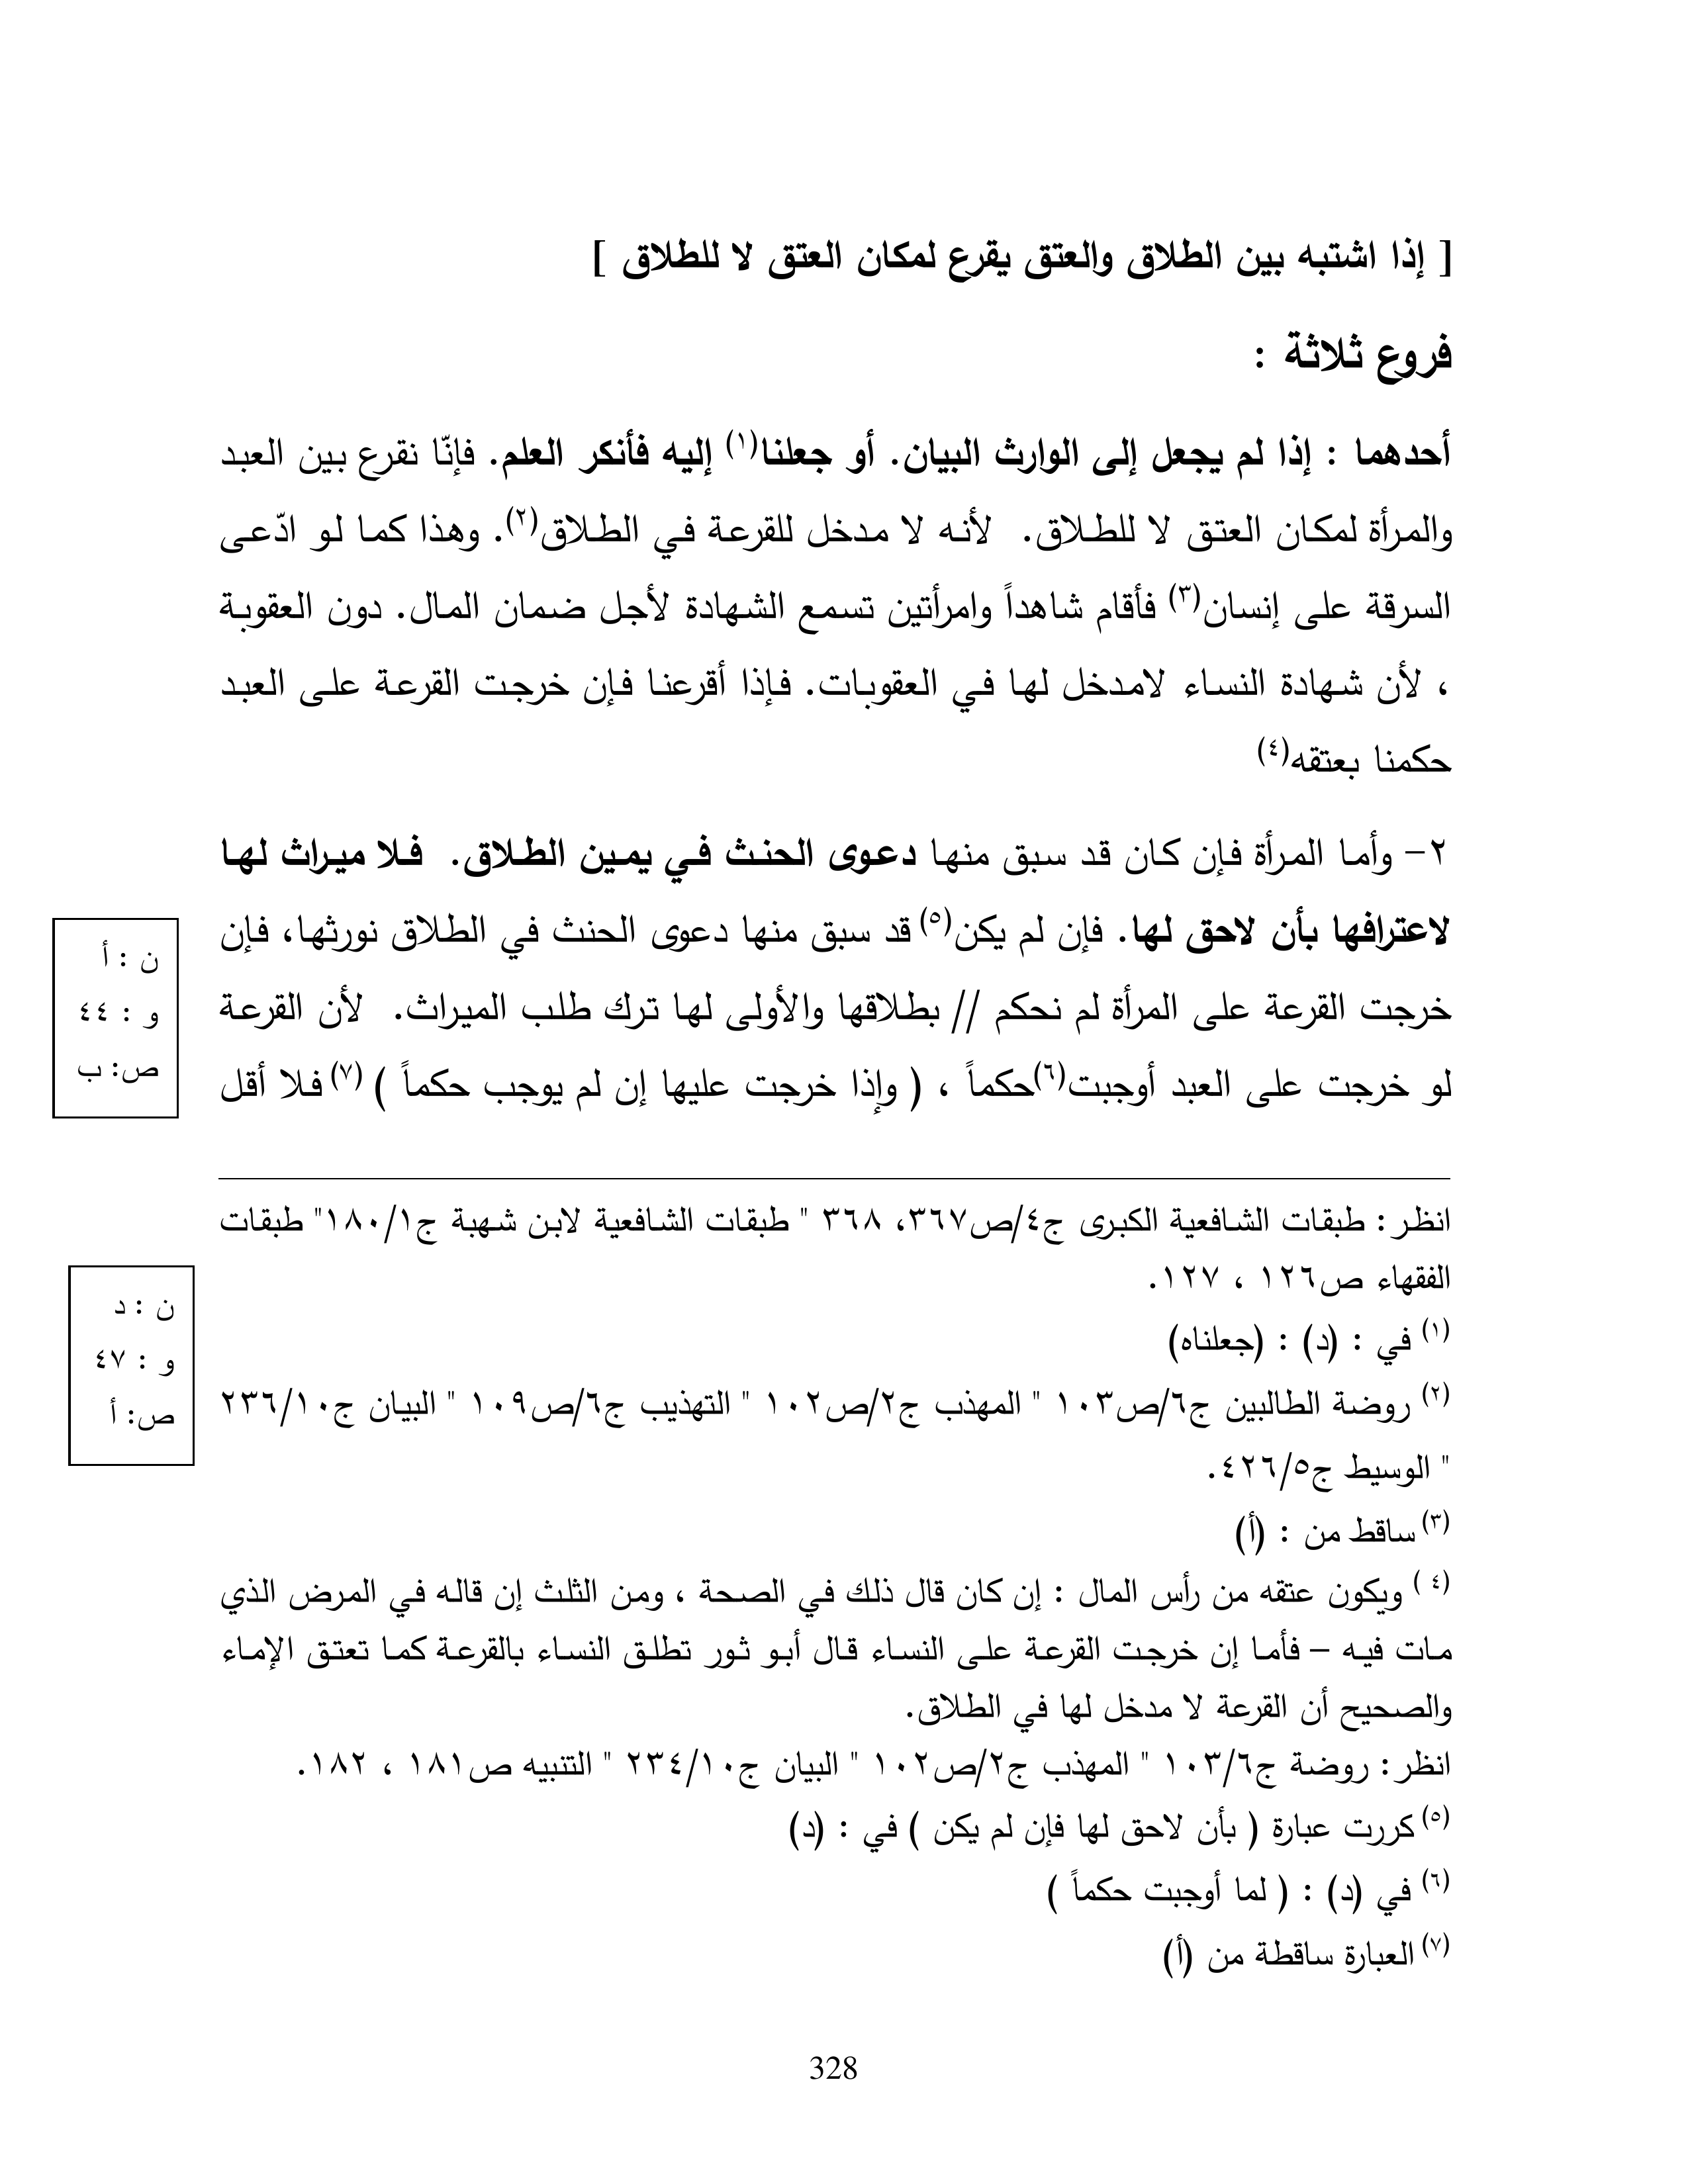 [ إذا اشتبه بين الطلاق والعتق يقرع لمكان العتق لا للطلاق ]
فروع ثلاثة :
أحدهما : إذا لم يجعل إلى الوارث البيان. أو جعلنا(١) إليه فأنكر العلم. فإنّا نقرع بين العبد
والمرأة لمكان العتق لا للطلاق. لأنه لا مدخل للقرعة في الطلاق(٢). وهذا كما لو ادّعى
السرقة على إنسان(٣) فأقام شاهداً وامرأتين تسمع الشهادة لأجل ضمان المال. دون العقوبة
، لأن شهادة النساء لامدخل لها في العقوبات. فإذا أقرعنا فإن خرجت القرعة على العبد
حكمنا بعتقه(٤)
٢- وأما المرأة فإن كان قد سبق منها دعوى الحنث في يمين الطلاق. فلا ميراث لها
لاعترافها بأن لاحق لها. فإن لم يكن(٥) قد سبق منها دعوى الحنث في الطلاق نورثها، فإن
خرجت القرعة على المرأة لم نحكم // بطلاقها والأولى لها ترك طلب الميراث. لأن القرعة
لو خرجت على العبد أوجبت(٦)حكماً ، ( وإذا خرجت عليها إن لم يوجب حكماً ) (٧) فلا أقل
ن : أ
و : ٤٤
ص: ب
انظر : طبقات الشافعية الكبرى ج٤/ص٣٦٧، ٣٦٨ " طبقات الشافعية لابن شهبة ج١/١٨٠" طبقات
الفقهاء ص١٢٦ ، ١٢٧.
(١) في : (د) : (جعلناه)
(٢) روضة الطالبين ج٦/ص١٠٣ " المهذب ج٢/ص١٠٢ " التهذيب ج٦/ص١٠٩ " البيان ج١٠/٢٣٦
" الوسيط ج٥/٤٢٦.
(٣) ساقط من : (أ)
(٤ ) ويكون عتقه من رأس المال : إن كان قال ذلك في الصحة ، ومن الثلث إن قاله في المرض الذي
مات فيه – فأما إن خرجت القرعة على النساء قال أبو ثور تطلق النساء بالقرعة كما تعتق الإماء
والصحيح أن القرعة لا مدخل لها في الطلاق.
انظر : روضة ج٦/١٠٣ " المهذب ج٢/ص١٠٢ " البيان ج١٠/٢٣٤ " التنبيه ص١٨١ ، ١٨٢.
(٥) كررت عبارة ( بأن لاحق لها فإن لم يكن ) في : (د)
(٦) في (د) : ( لما أوجبت حكماً )
(٧) العبارة ساقطة من (أ)
ن : د
و : ٤٧
ص: أ
328